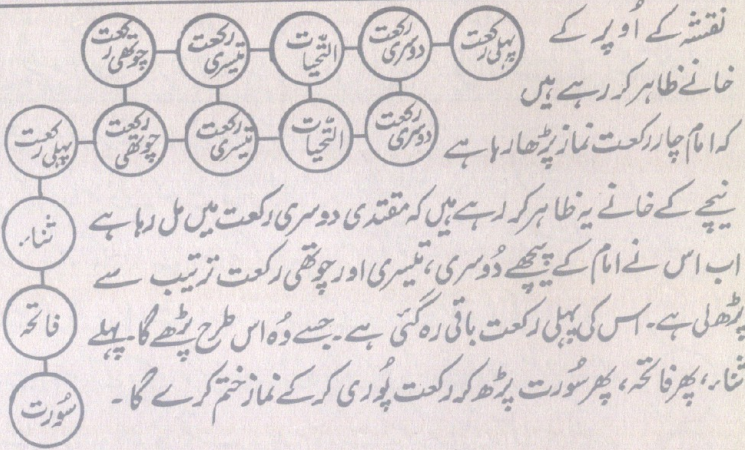 نقشہ کے اُوپر کے
خانے ظاہر کر رہے ہیں
کہ امام چار رکعت نماز پڑھا رہا ہے
پہلی رکعت
دوسری رکعت
التحیات
تیسری رکعت
چوتھی رکعت
دوسری رکعت
التحیات
تیسری رکعت
چوتھی رکعت
پہلی رکعت
ثناء
فاتحہ
سُورت
نیچے کے خانے یہ ظاہر کر رہے ہیں کہ مقتدی دوسری رکعت میں مل رہا ہے
اب اس نے امام کے پیچھے دُوسری، تیسری اور چوتھی رکعت ترتیب سے
پڑھ لی ہے۔ اس کی پہلی رکعت باقی رہ گئی ہے۔ جسے وُہ اس طرح پڑھے گا۔ پہلے
ثناء، پھر فاتحہ، پھر سُورت پڑھ کر رکعت پُوری کر کے نماز ختم کرے گا۔